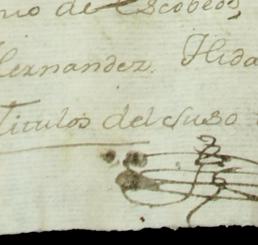 nio de Escobedo,
Hernandez. Hida
Titulos del suso